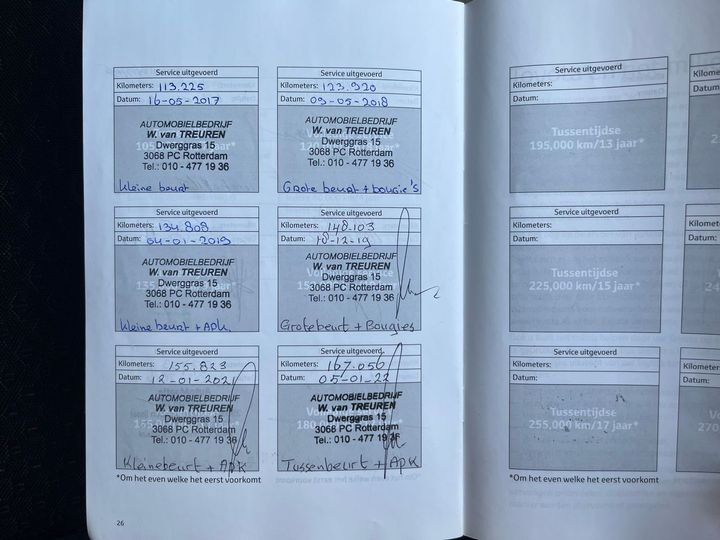 Service uitgevoerd
Kilometers: 113.225
Datum: 16-05-2017
AUTOMOBIELBEDRIJF
W. van TREUREN
Dwerggras 15
3068 PC Rotterdam
Tel.: 010 - 477 19 36
Kleine beurt
Service uitgevoerd
Kilometers: 123.920
Datum: 09-05-2018
AUTOMOBIELBEDRIJF
W. van TREUREN
Dwerggras 15
3068 PC Rotterdam
Tel.: 010 - 477 19 36
Grote beurt + bougie's
Service uitgevoerd
Kilometers: 134.809
Datum: 04-01-2019
AUTOMOBIELBEDRIJF
W. van TREUREN
Dwerggras 15
3068 PC Rotterdam
Tel.: 010 - 477 19 36
Kleine beurt + APK.
Service uitgevoerd
Kilometers: 148.103
Datum: 18-12-19
AUTOMOBIELBEDRIJF
W. van TREUREN
Dwerggras 15
3068 PC Rotterdam
Tel.: 010 - 477 19 36
Grotebeurt + Bougies
Service uitgevoerd
Kilometers: 155.823
Datum: 12-01-2021
AUTOMOBIELBEDRIJF
W. van TREUREN
Dwerggras 15
3068 PC Rotterdam
Tel.: 010 - 477 19 36
Kleinebeurt + APK
Service uitgevoerd
Kilometers: 167.056
Datum: 05-01-22
AUTOMOBIELBEDRIJF
W. van TREUREN
Dwerggras 15
3068 PC Rotterdam
Tel.: 010 - 477 19 36
Tussenbeurt + APK
*Om het even welke het eerst voorkomt
26
Service uitgevoerd
Kilometers:
Datum:
Tussentijdse
195.000 km/13 jaar*
Service uitgevoerd
Kilometers:
Datum:
Tussentijdse
225.000 km/15 jaar*
Service uitgevoerd
Kilometers:
Datum:
Tussentijdse
255.000 km/17 jaar*
*Om het even welke het eerst voorkomt
Kilometers
Datum:
Kilometers
Datum:
Kilometers
Datum: